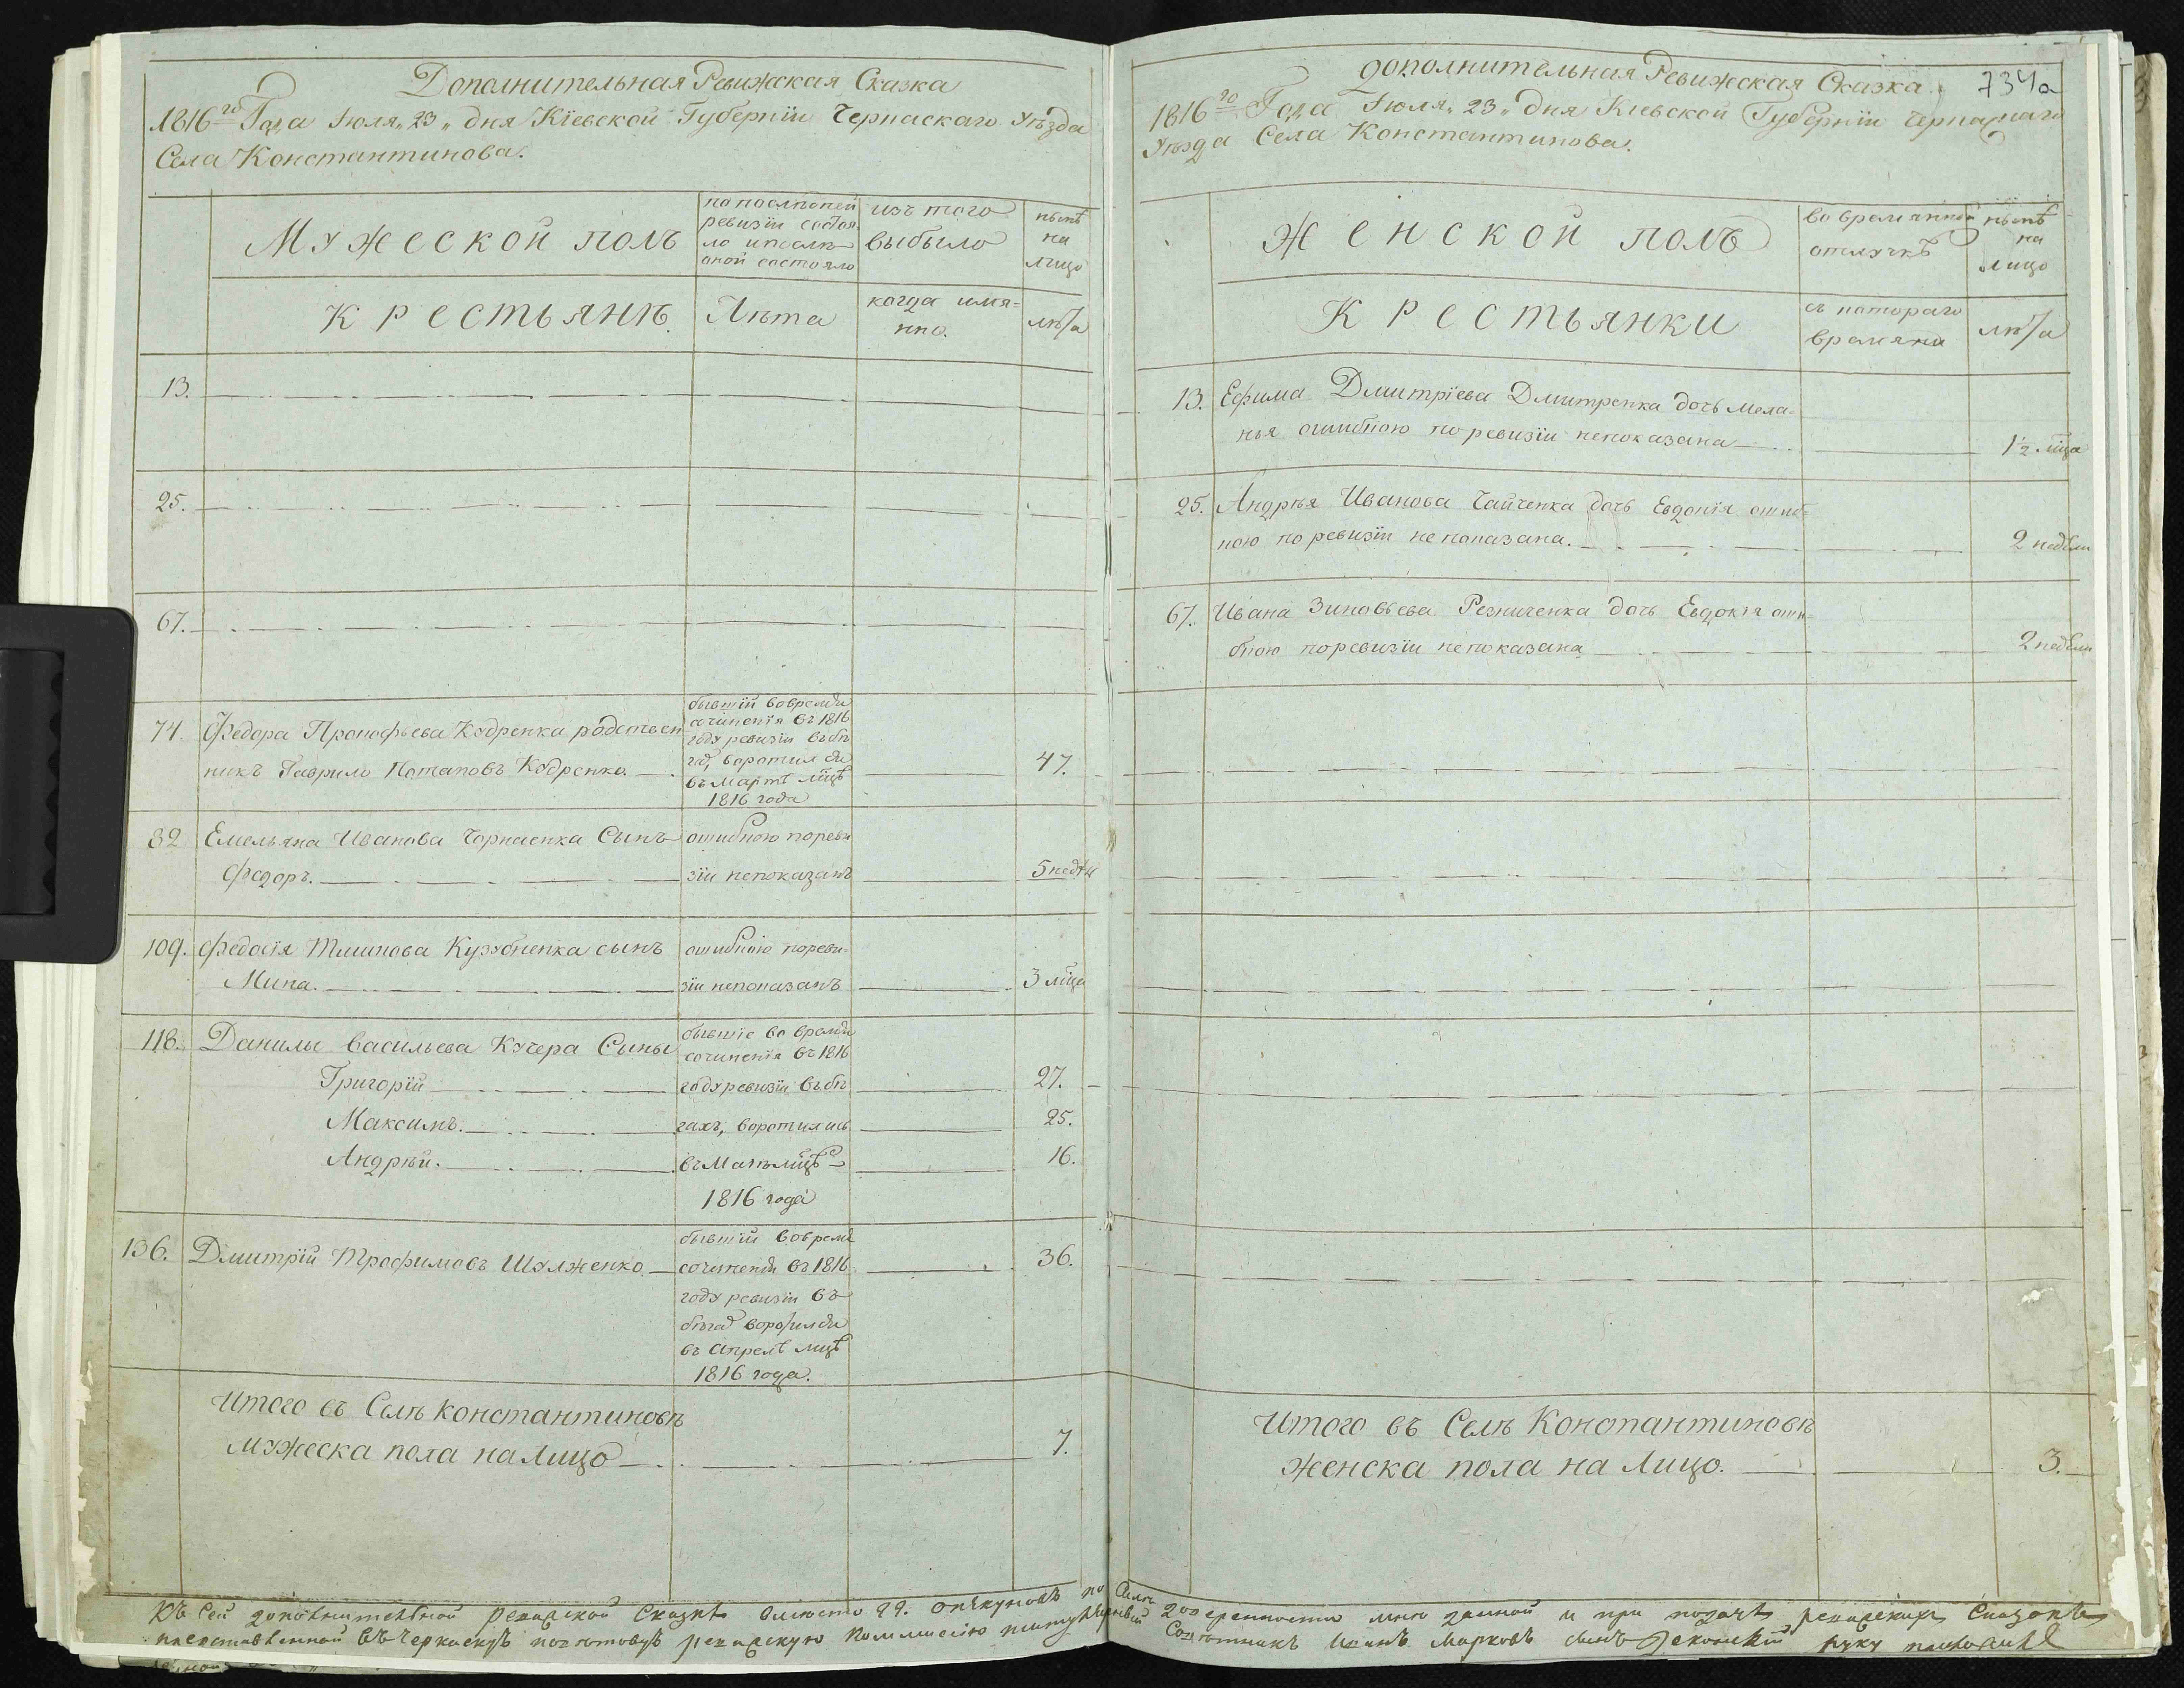 Дополнительная Ревижская Сказка
1816го Года Июля „23„ дня Кіевской Губерніи Черкаскаго Уѣзда
Села Константинова.
Мужеской полъ
по послѣдней
ревизіи состоя
ло и послѣ
оной состояло
изъ того
выбыло
нынѣ
на
лицо
Крестьянъ.
Лѣта
когда имя=
нно.
лѣта
13.
25.
67.
74. Федора Прокофьева Кудренка родствен
никъ Гаврило Потаповъ Кудренко.
бывшій вовремя
сочиненія въ 1816
году ревизіи въ бѣ
гах, воротился
въ Мартѣ мцѣ
1816 года
47.
82 Емельяна Иванова Чорнаенка Сынъ
Федоръ.
ошибкою пореви
зіи непоказанъ
5 недѣл
109. Федосія Куззбненка сынъ
Мина.
ошибкою пореви=
зіи непоказанъ
3 мца
118. Данилы Васильева Кучера Сыны
Григорій
Максимъ.
Андрѣй.
бывшіе во время
сочиненія въ 1816
году ревизіи въ бѣ
гахъ, воротились
въ Маѣ мцѣ
1816 года
27.
25.
16.
136. Дмитрій Трофимовъ Шулженко.
бывшій вовремя
сочиненія въ 1816
году ревизіи въ
бѣгах воротился
въ Апрелѣ мцѣ
1816 года.
36.
Итого въ Селѣ Константиновѣ
мужеска пола на Лицо
7.
Дополнительная Ревижская Сказка
734а
1816го Года Июля „23„ дня Кіевской Губерніи Черкаскаго
Уѣзда Села Константинова.
Женской полъ
во времянной
отлучкѣ
нынѣ
на
лицо
Крестьянки
съ котораго
времяни
лѣта
13. Ефима Дмитріева Дмитренка дочь Мела=
нья ошибкою по ревизіи непоказана
1½ мца
25. Андрѣя Иванова Чайченка дочь Евдокія ошиб=
кою по ревизіи не показана.
2 недѣли
67. Ивана Зиновьева Резниченка дочь Евдокія оши=
бкою поревизіи непоказана
2 недѣли
Итого въ Селѣ Константиновѣ
женска пола на Лицо.
3.
Къ сей дополнительной ревижской Сказкѣ вмѣсто гг. опѣкуновъ по силѣ довѣренности мнѣ данной и при подачѣ ревижскихъ Сказокъ
представленной въ Черкаскую повѣтовую ревижскую Коммисію Иванъ Марковъ сынъ руку приложилъ